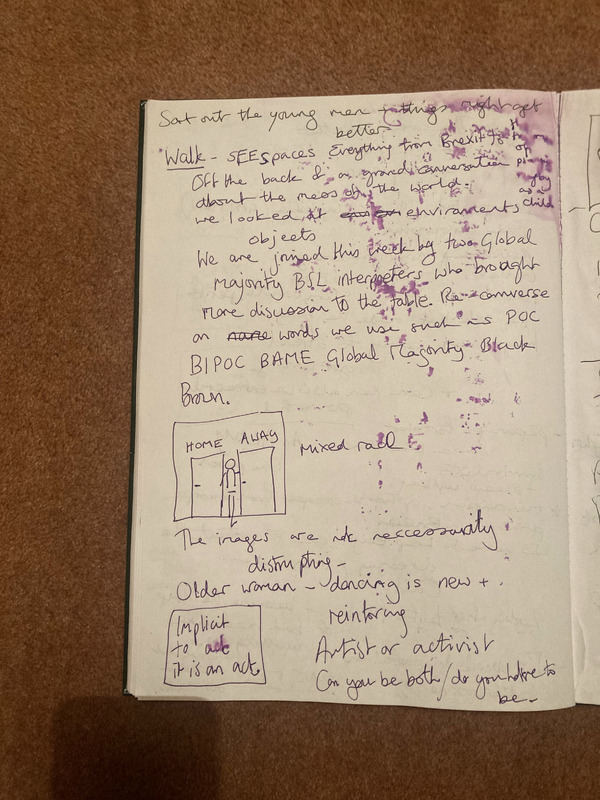 Sort out the young men + things might get
better
Walk - SEE spaces Everything from Brexit to
Off the back of a grand conversation
about the mess of the world -
we looked at environments
objects
We are joined this week by two Global
Majority BSL interpreters who brought
more discussion to the table. Re-converse
on words we use such as POC
BIPOC BAME Global Majority Black
Brown.
HOME AWAY
Mixed race
The images are not neccessarity
disrupting -
Older woman - dancing is new +
Implicit
to act
it is an act.
Artist or activist
Can you be both / do you have to
be -